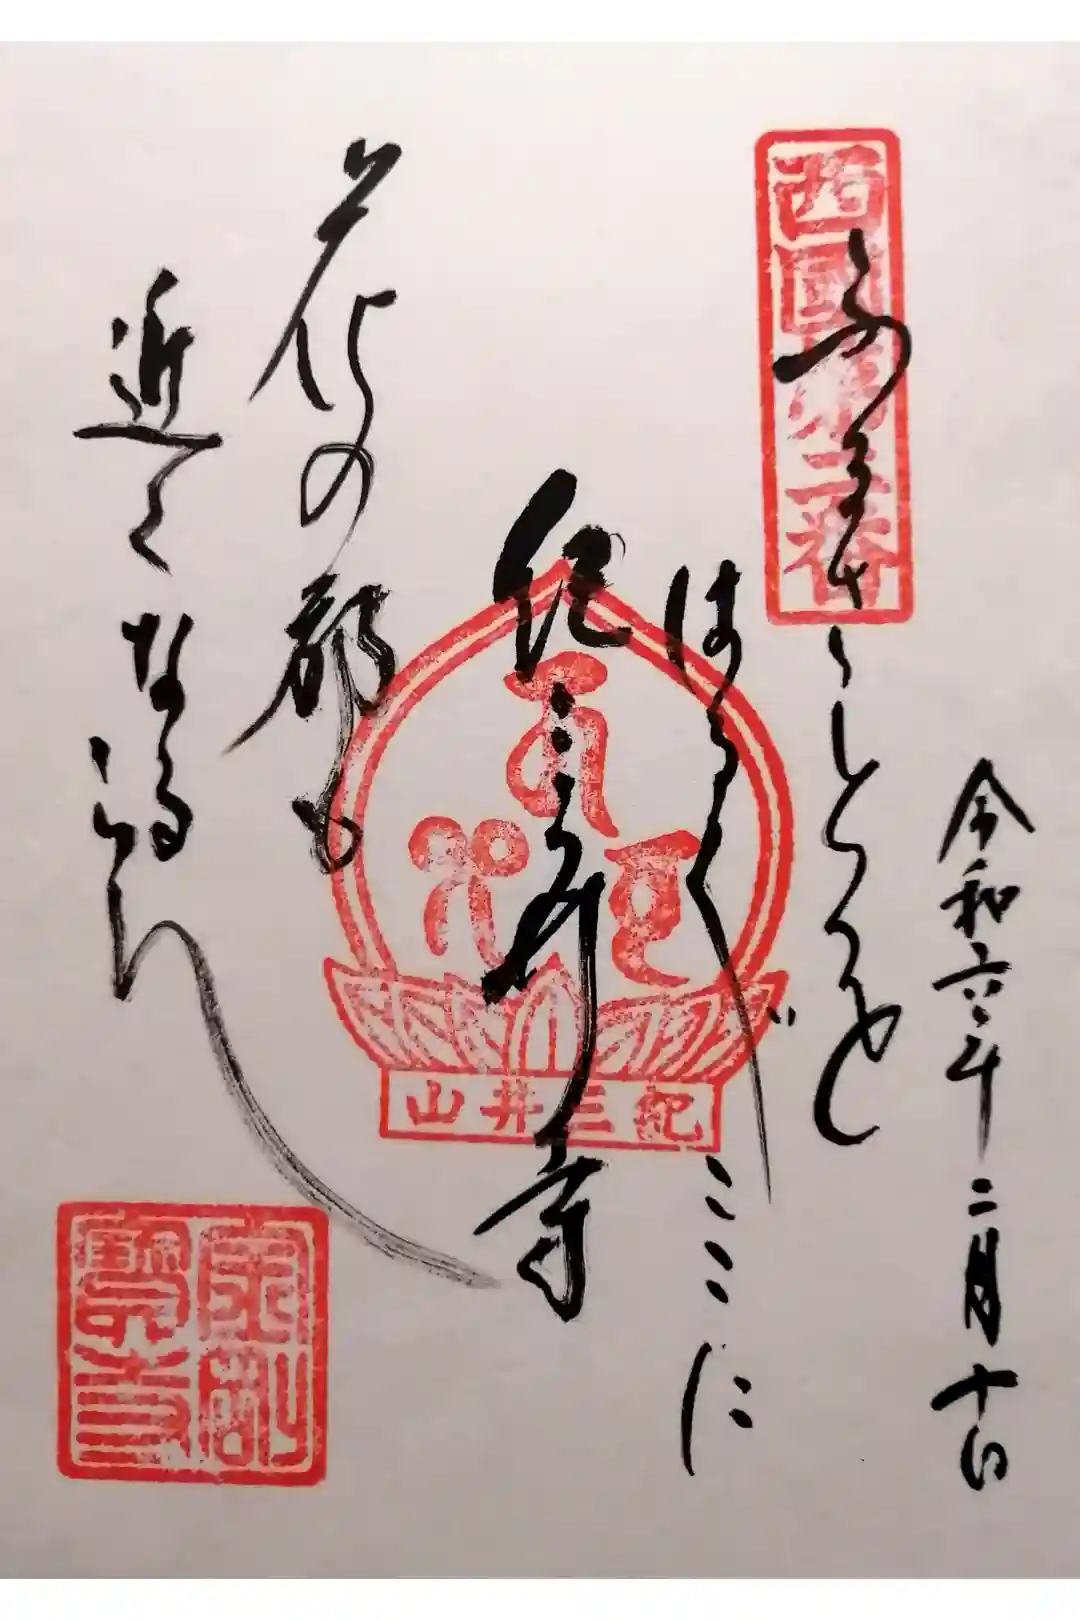 令和六年二月十日
西國第二番
ふるさとを
はる〴〵ここに
紀三井寺
花の都も
近くなるらん
紀三井山
金剛
寶寺